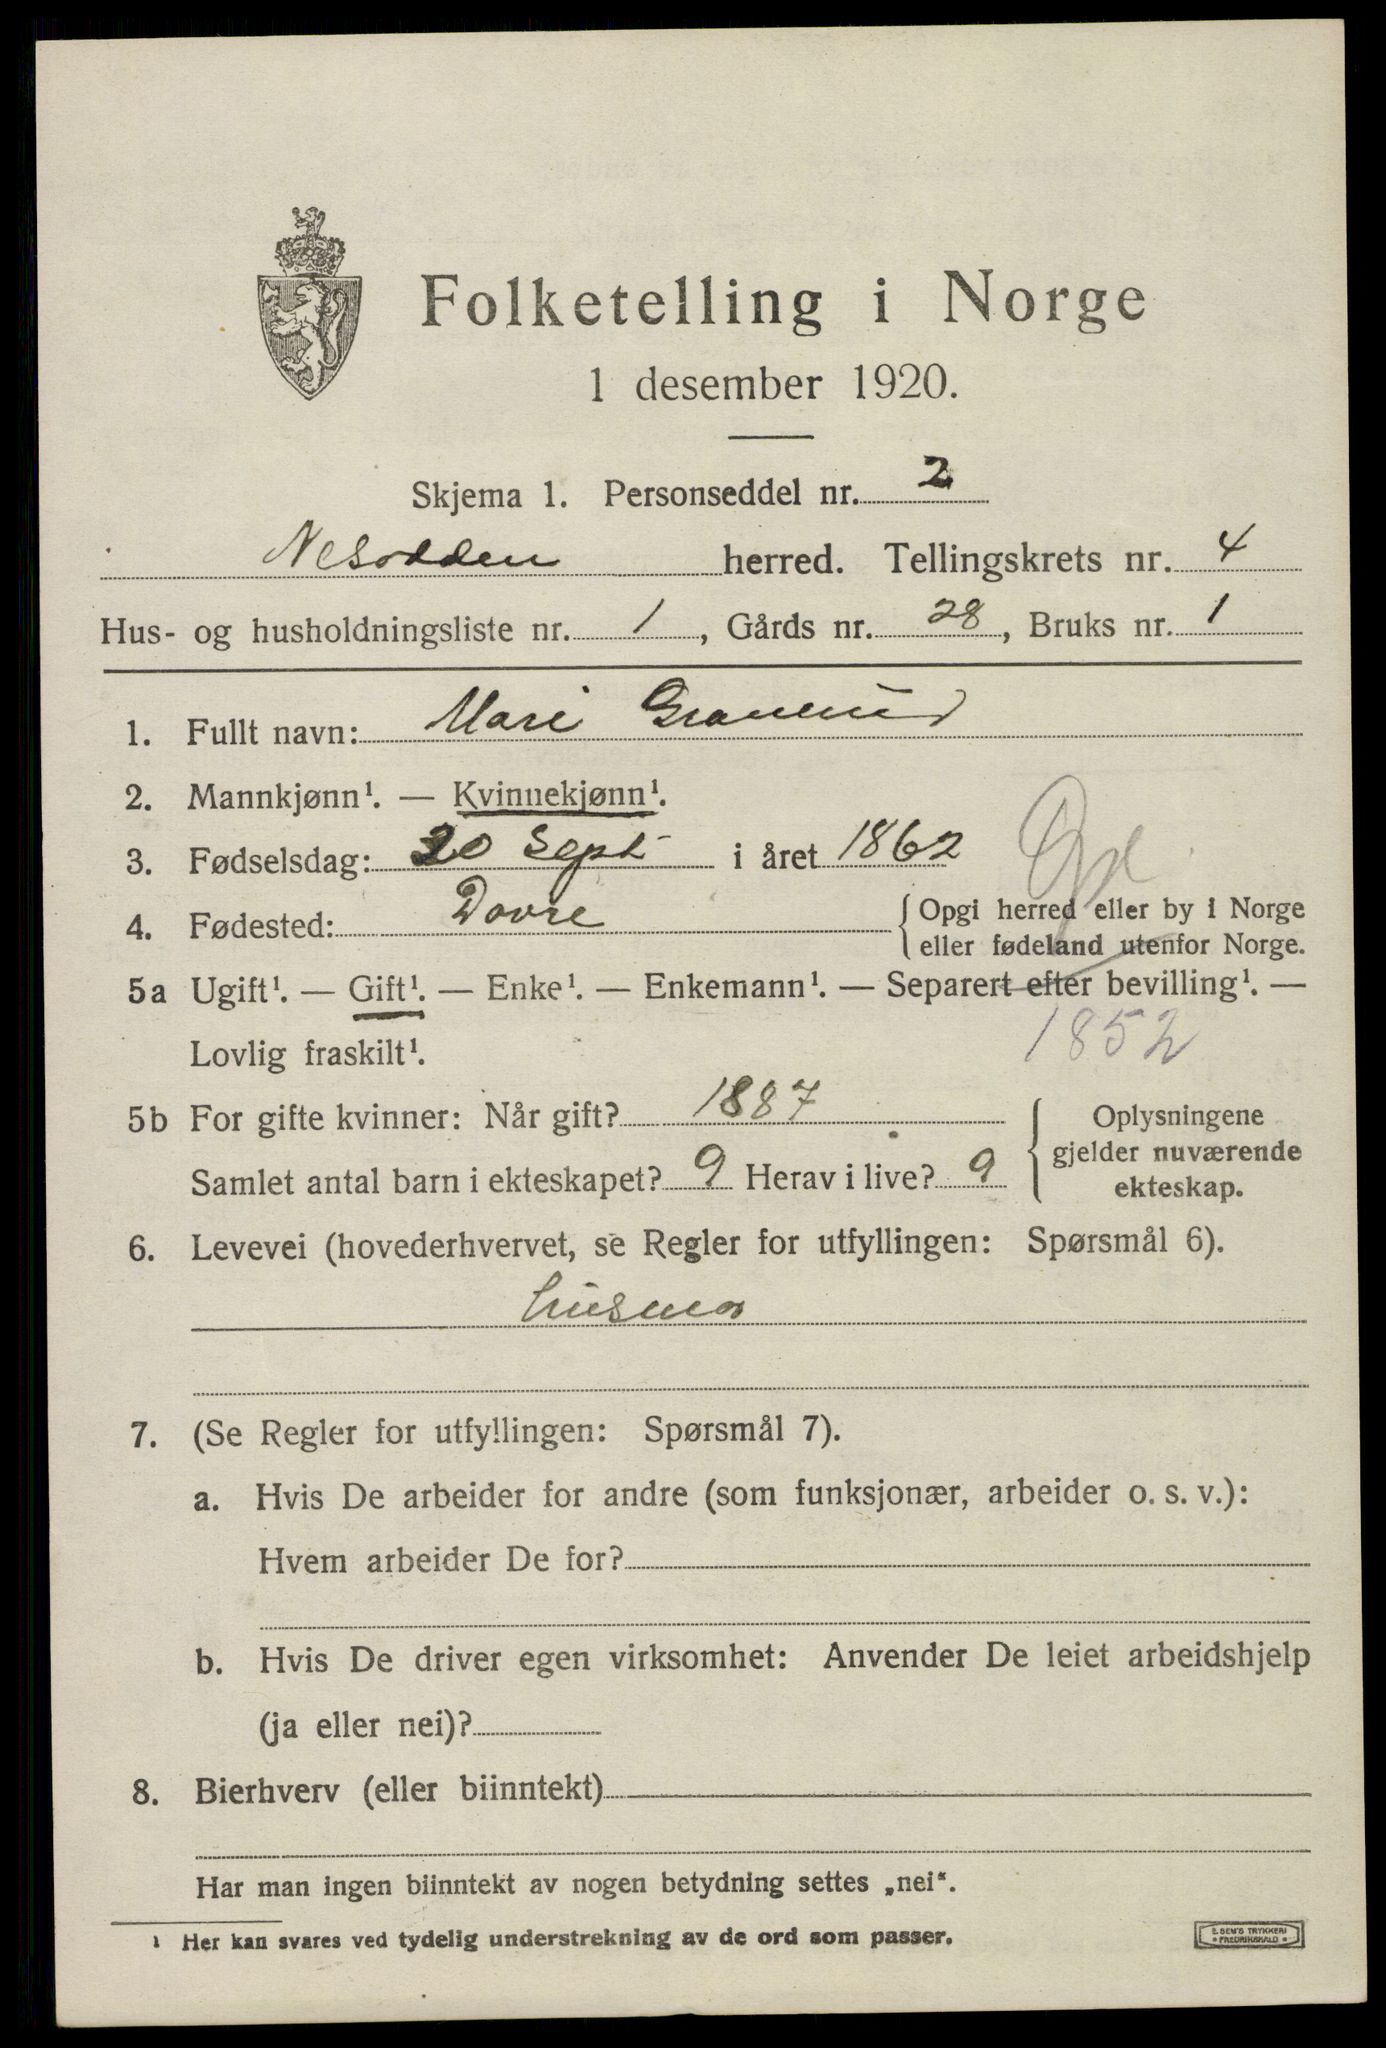 Folketelling i Norge
1 desember 1920.
Skjema 1. Personseddel nr. 2
Nesodden herred. Tellingskrets nr. 4
Hus- og husholdningsliste nr. 1, Gårds nr. 28, Bruks nr. 1
1. Fullt navn: Mari
2. Mannkjønn¹. — Kvinnekjønn¹.
3. Fødselsdag: 20 Sept i året 1862
4. Fødested: Dovre { Opgi herred eller by i Norge
eller fødeland utenfor Norge.
5a Ugift¹. — Gift¹. — Enke¹. — Enkemann¹. — Separert efter bevilling¹. —
Lovlig fraskilt¹.
1852
5b For gifte kvinner: Når gift? 1887 { Oplysningene
gjelder nuværende
ekteskap.
Samlet antal barn i ekteskapet? 9 Herav i live? 9
6. Levevei (hovederhvervet, se Regler for utfyllingen: Spørsmål 6).
husmor
7. (Se Regler for utfyllingen: Spørsmål 7).
a. Hvis De arbeider for andre (som funksjonær, arbeider o. s. v.):
Hvem arbeider De for?
b. Hvis De driver egen virksomhet: Anvender De leiet arbeidshjelp
(ja eller nei)?
8. Bierhverv (eller biinntekt)
Har man ingen biinntekt av nogen betydning settes „nei".
¹ Her kan svares ved tydelig understrekning av de ord som passer.
TRYKKERI
FREDRIKSHALD